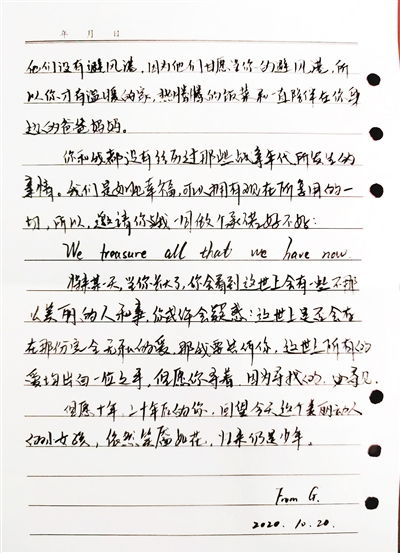 年 月 日
他们没有避风港，因为他们甘愿当你的避风港，所
以你才有温暖的家，热腾腾的饭菜和一直陪伴在你身
边的爸爸妈妈。
你和我都没有经历过那些战争年代所发生的
事情。我们是如此幸福，可以拥有现在所享用的一
切，所以，邀请你我一同做个承诺好不好：
We treasure all that we have now
将来某一天，当你长大了，你会看到这世上会有一些不那
么美丽的人和事，你或许会疑惑：这世上是否会存
在那份完全无私的爱，那我要告诉你，这世上所有的
爱均出自一位之手，但愿你寻着，因为寻找的，必寻见。
但愿十年、二十年后的你，回望今天这个美丽动人
的小女孩，依然笑靥如花，归来仍是少年。
From G.
2020.10.20.